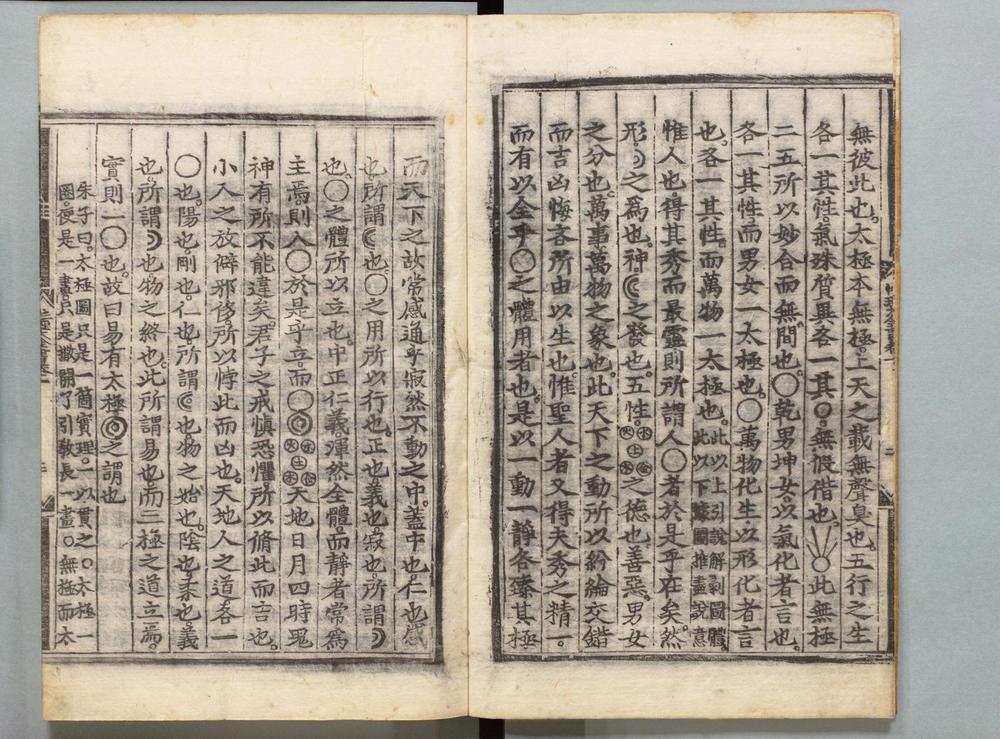 無彼此也。太極本無極。上天之載無聲臭也。五行之生
各一其性。氣殊質異。各一其○。無假借也。○此無極
二五所以妙合而無間也。○乾男坤女。以氣化者言也。
各一其性而男女一太極也。○萬物化生以形化者言
也。各一其性。而萬物一太極也。此以上引說解剝圖體。此以下據圖推盡說意
惟人也得其秀而最靈則所謂人○者於是乎在矣。然
形。☽之爲也。神。☾之發也。五性。水火土木金之德也。善惡。男女
之分也。萬事萬物之象也。此天下之動所以紛綸交錯
而吉凶悔吝所由以生也。惟聖人者又得夫秀之精一。
而有以全乎○之體用者也。是以一動一靜各臻其極
而天下之故常感通乎寂然不動之中。蓋中也。仁也。感
也。所謂☾也。○之用所以行也。正也。義也。寂也。所謂☽
也。○之體所以立也。中正仁義渾然全體。而靜者常爲
主焉。則人○於是乎立。而○◎水火土木金天地日月四時鬼
神有所不能違矣。君子之戒愼恐懼。所以脩此而吉也。
小人之放僻邪侈。所以悖此而凶也。天地人之道。各一
○也。陽也。剛也。仁也。所謂☾也。物之始也。陰也。柔也。義
也。所謂☽也。物之終也。此所謂易也。而三極之道立焉。
實則一○也。故曰易有太極◎之謂也
朱子曰。太極圖只是一箇實理。一以貫之○太極一
圈。便是一畫。只是撒開了引教長一畫。○無極而太